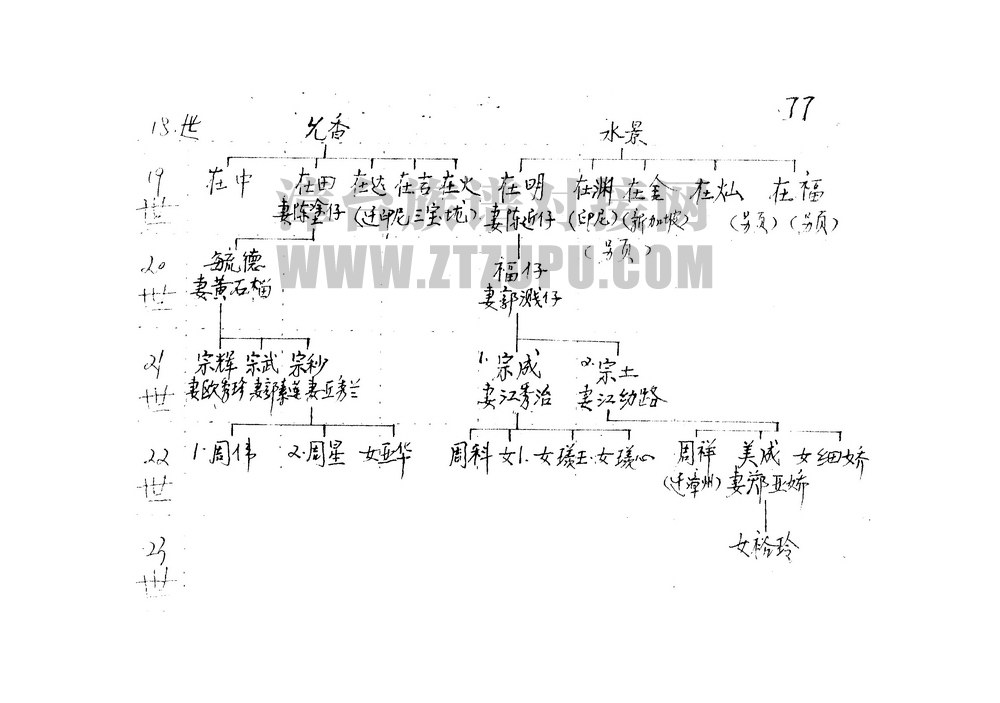 77
18.世 允香 水景
19世 在中 在田 在达 在吉 在火 在明 在渊 在金 在灿 在福
妻陈塗仔 (迁印尼三宝垅) 妻陈近仔 (印尼) (新加坡) (另页) (另页)
(另页)
漳台族谱对接网
WWW.ZTZUPU.COM
20世 毓德 福仔
妻黄石榴 妻郭溅仔
21世 宗辉 宗武 宗秒 1.宗成 2.宗土
妻欧秀珍 妻郭素莲 妻丘秀兰 妻江秀治 妻江幼路
22世 1.周伟 2.周星 女亚华 周科 女1. 女璤玉. 女璤心 周祥 美成 女细娇
(迁漳州) 妻郑亚娇
23世 女裕玲